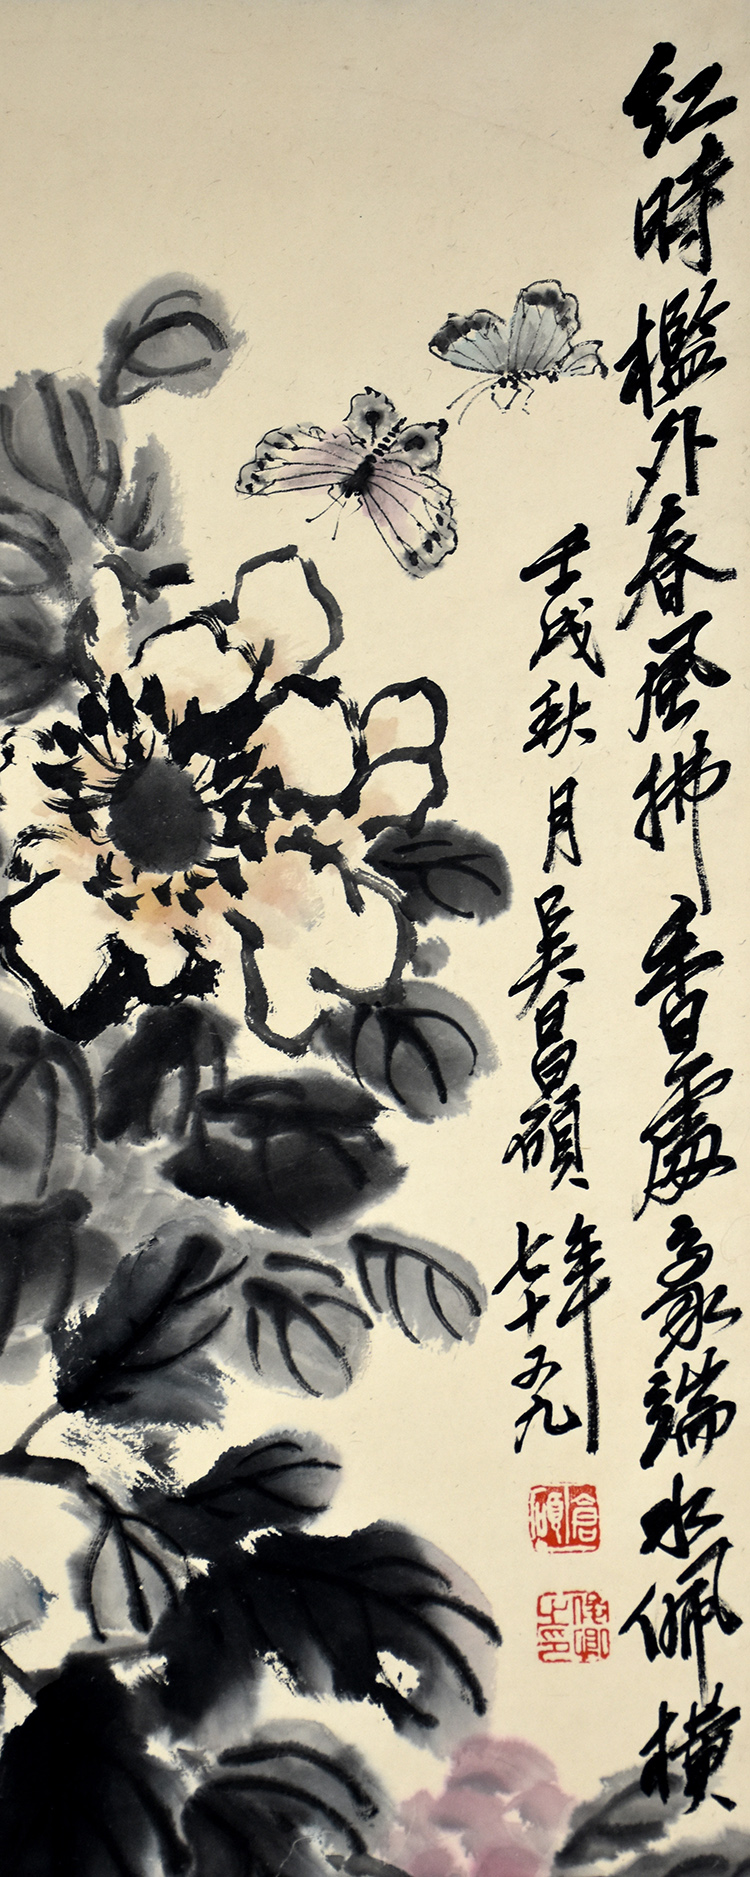 紅時檻外春風拂香處豪端水佩橫
壬戌秋月吳昌碩年
七十又九
倉碩
俊卿之印